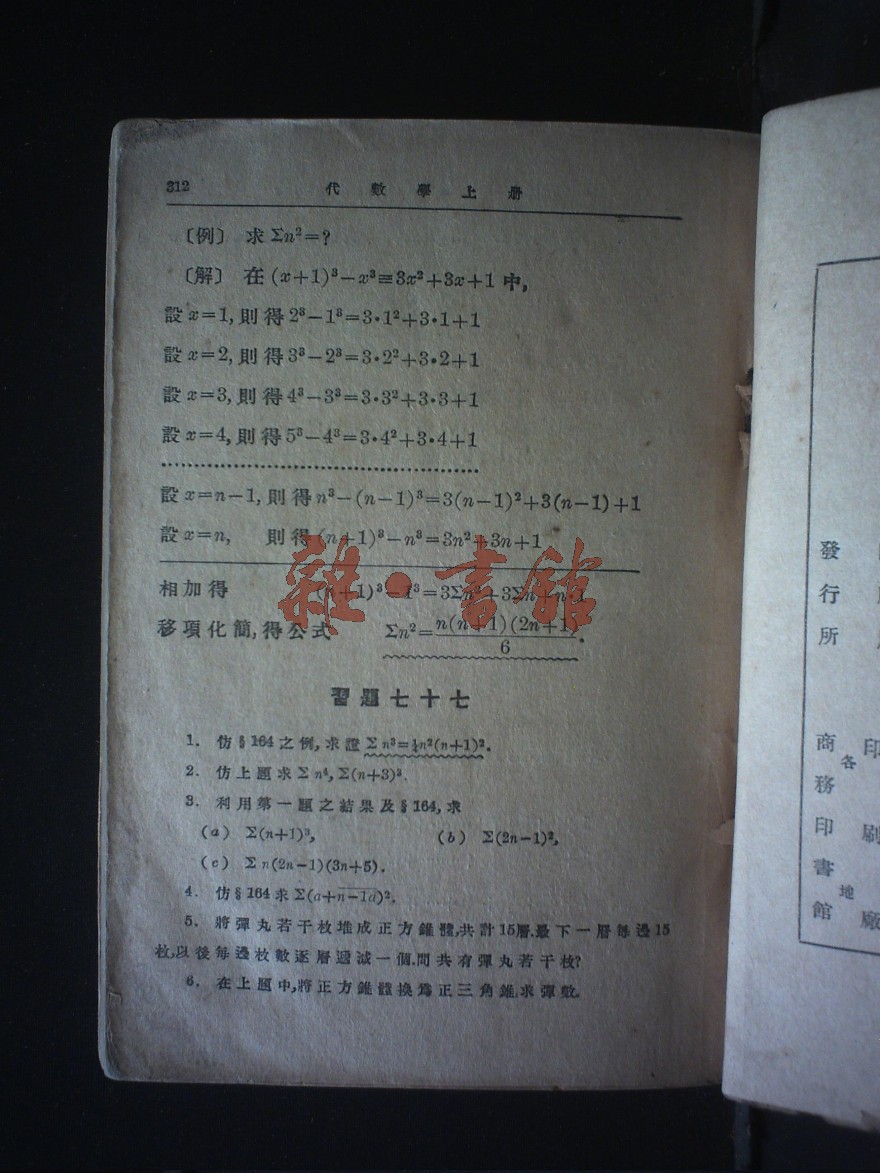 312 代數學上册
〔例〕 求 Σn²=?
〔解〕 在 (x+1)³−x³≡3x²+3x+1 中,
設 x=1, 則得 2³−1³=3•1²+3•1+1
設 x=2, 則得 3³−2³=3•2²+3•2+1
設 x=3, 則得 4³−3³=3•3²+3•3+1
設 x=4, 則得 5³−4³=3•4²+3•4+1
設 x=n−1, 則得 n³−(n−1)³=3(n−1)²+3(n−1)+1
設 x=n, 則得 (n+1)³−n³=3n²+3n+1
相加得 (n+1)³−1³=3Σn²+3Σn+n·1
移項化簡, 得公式 Σn²=n(n+1)(2n+1)/6.
雜•書館
習題七十七
1. 仿§164之例, 求證 Σn³=¼n²(n+1)².
2. 仿上題求 Σn⁴, Σ(n+3)³.
3. 利用第一題之結果及§164, 求
(a) Σ(n+1)³, (b) Σ(2n−1)²,
(c) Σn(2n−1)(3n+5).
4. 仿§164求 Σ(a+n−1d)².
5. 將彈丸若干枚堆成正方錐體, 共計15層. 最下一層每邊15
枚, 以後每邊枚數逐層遞減一個. 問共有彈丸若干枚?
6. 在上題中, 將正方錐體換爲正三角錐, 求彈數.
發行所
商務印書館
各地
印刷
廠